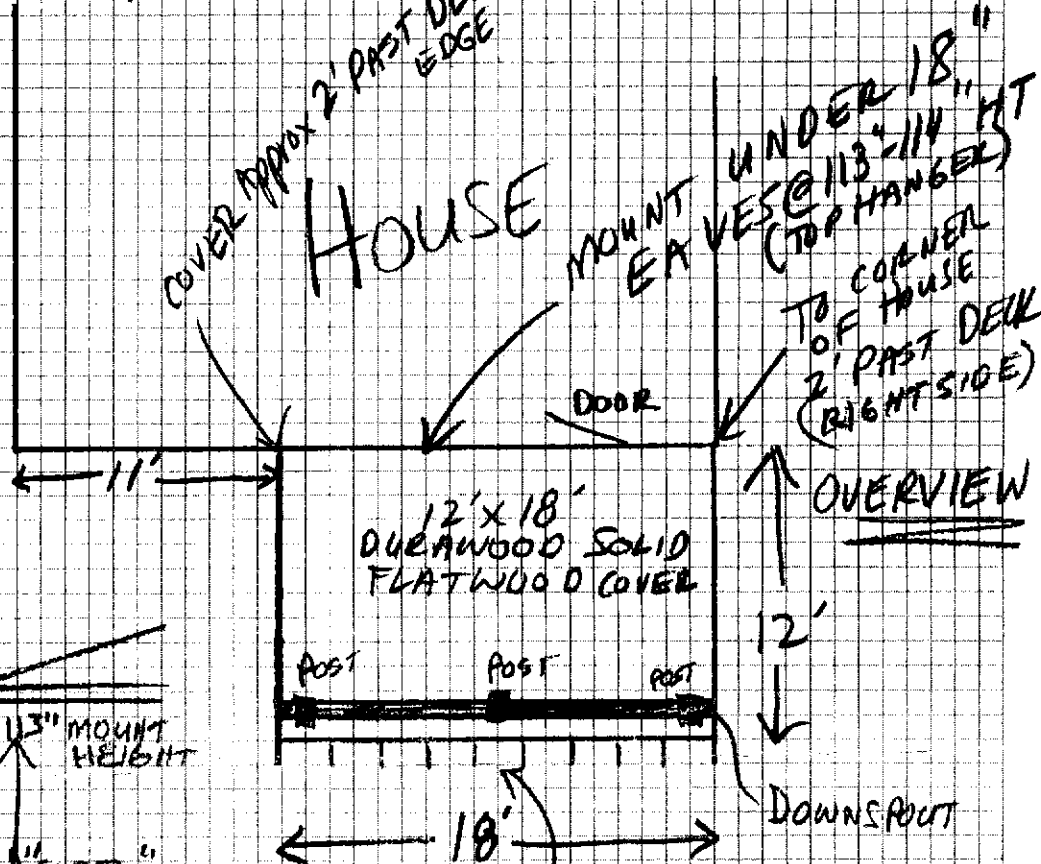 COVER APPROX 2' PAST
EDGE
HOUSE
MOUNT UNDER 18"
EAVES @ 113"-114" HT
(TOP HANGER)
TO CORNER
OF HOUSE
2' PAST DECK
(RIGHT SIDE)
DOOR
11'
OVERVIEW
12' x 18'
DURAWOOD SOLID
FLATWOOD COVER
12'
POST POST POST
113" MOUNT
HEIGHT
DOWNSPOUT
18'